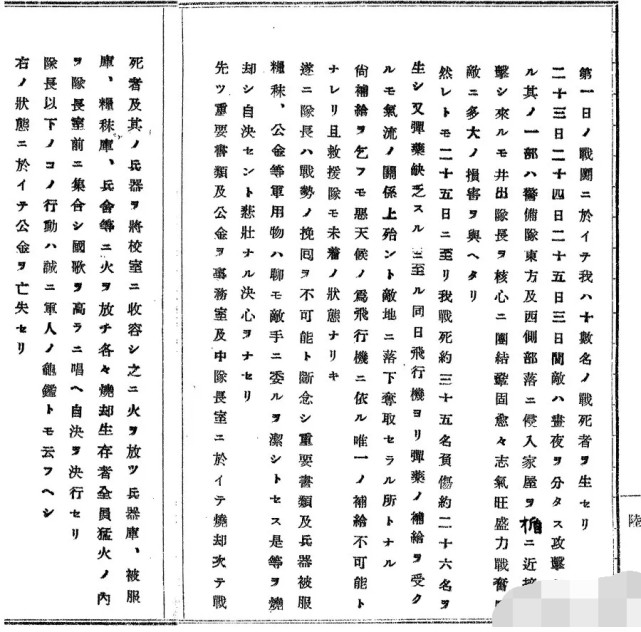 第一日ノ戰鬪ニ於イテ我ハ十數名ノ戰死者ヲ生セリ
二十三日二十四日二十五日三日間敵ハ晝夜ヲ分タス攻擊
ル其ノ一部ハ警備隊東方及西側部落ニ侵入家屋ヲ楯ニ近接
擊シ來ルモ井出隊長ヲ核心ニ團結鞏固愈々志氣旺盛力戰奮
敵ニ多大ノ損害ヲ與ヘタリ
然レトモ二十五日ニ至リ我戰死約三十五名負傷約二十六名ヲ
生シ又彈藥缺乏スルニ至ル同日飛行機ヨリ彈藥ノ補給ヲ受ク
ルモ氣流ノ關係上殆ント敵地ニ落下奪取セラル所トナル
尙補給ヲ乞フモ惡天候ノ爲飛行機ニ依ル唯一ノ補給不可能ト
ナレリ且救援隊モ未着ノ狀態ナリキ
遂ニ隊長ハ戰勢ノ挽囘ヲ不可能ト斷念シ重要書類及兵器被服
糧秣、公金等軍用物ハ聊モ敵手ニ委ルヲ潔シトセス是等ヲ燒
却シ自決セント悲壯ナル決心ヲナセリ
先ツ重要書類及公金ヲ事務室及中隊長室ニ於イテ燒却次テ戰
死者及其ノ兵器ヲ將校室ニ收容シ之ニ火ヲ放ツ兵器庫、被服
庫、糧秣庫、兵舍等ニ火ヲ放チ各々燒却生存者全員猛火ノ內
ヲ隊長室前ニ集合シ國歌ヲ高ラニ唱ヘ自決ヲ決行セリ
隊長以下ノコノ行動ハ誠ニ軍人ノ龜鑑トモ云フヘシ
右ノ狀態ニ於イテ公金ヲ亡失セリ
陸